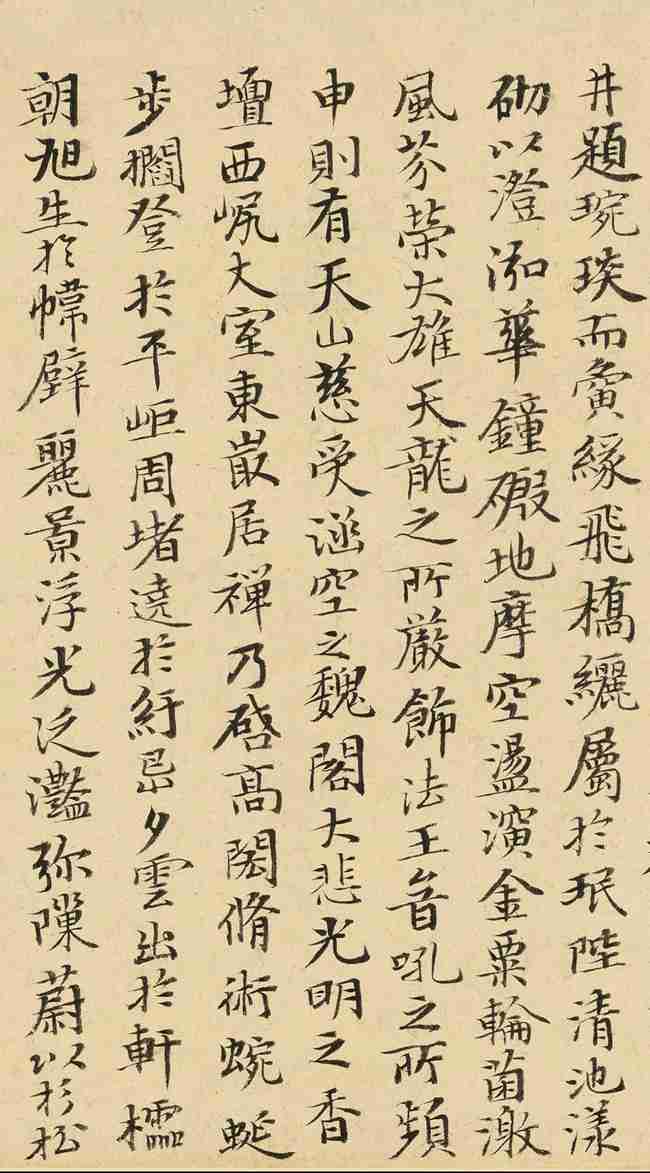 井題琬琰而夤緣飛橋纚屬於珉陸清池漾
砌以澄泓華鐘礙地摩空盪濱金粟輪菌激
風芬榮大雄天龍之所嚴飾法王音吼之所頻
申則有天山慈受涵空之魏閣大悲光明之香
壇西㞘大室東㟁居禪乃啓高閎脩術蜿蜒
步櫩登於平岠周堵遶於紆㟃夕雲出於軒櫺
朝旭生於幃壁麗景浮光泛灩弥隟蔚以杉松